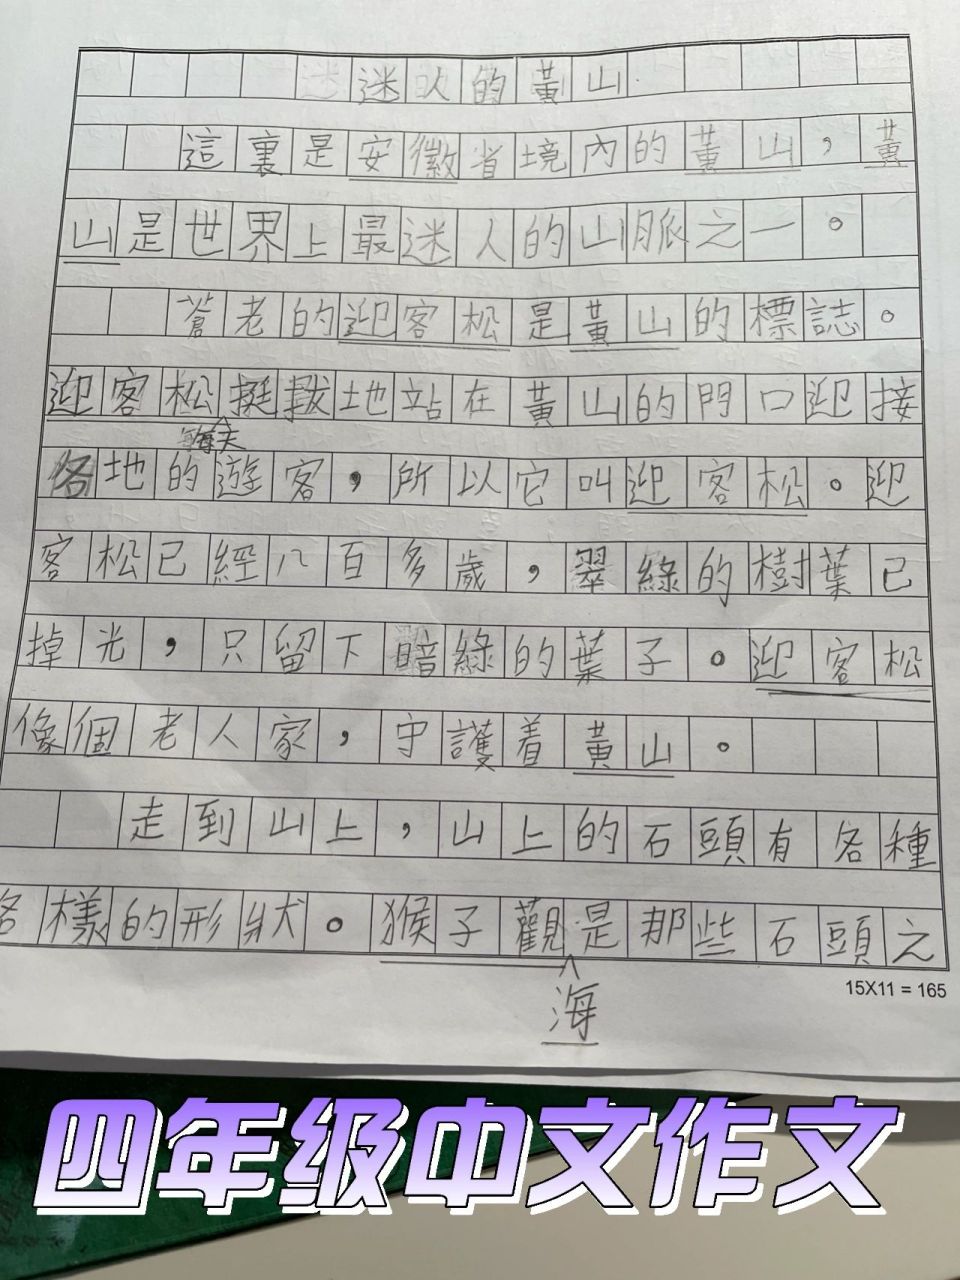 迷人的黃山
這裏是安徽省境內的黃山，黃
山是世界上最迷人的山脈之一。
蒼老的迎客松是黃山的標誌。
迎客松挺拔地站在黃山的門口迎接
每天
各地的遊客，所以它叫迎客松。迎
客松已經八百多歲，翠綠的樹葉已
掉光，只留下暗綠的葉子。迎客松
像個老人家，守護着黃山。
走到山上，山上的石頭有各種
各樣的形狀。猴子觀是那些石頭之
海
15X11 = 165
四年级中文作文